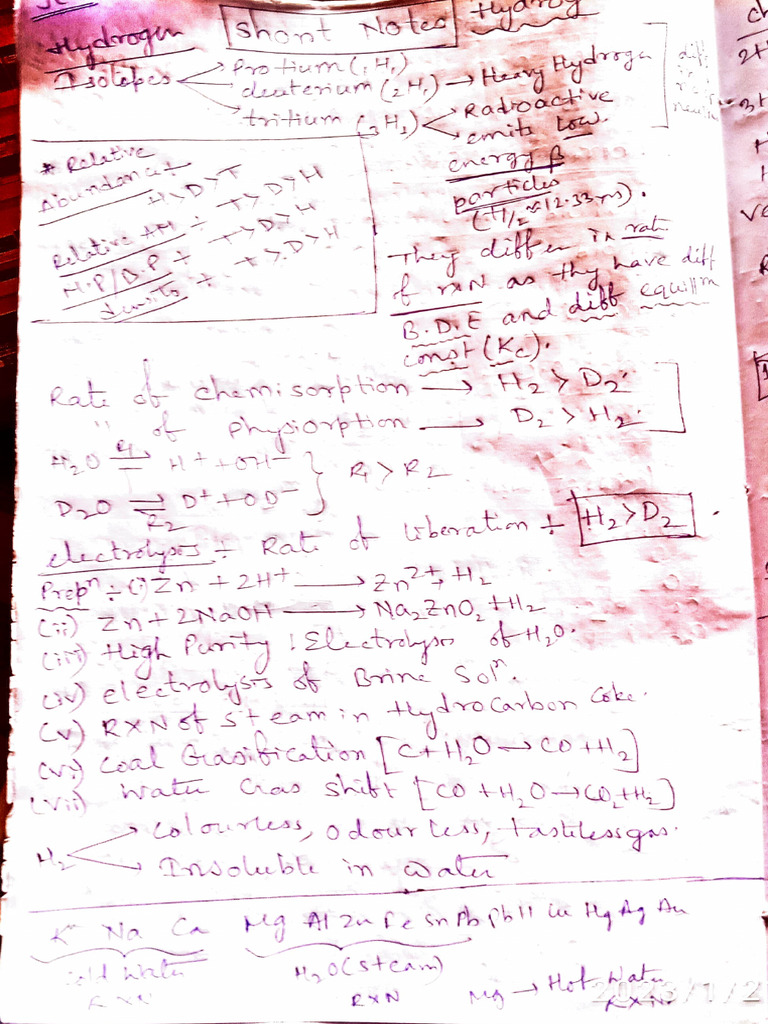 Hydrogen Short Notes Hydrog
Isotopes
Protium (1H1)
deuterium (2H1) → Heavy Hydrogen
tritium (3H1)
Radioactive
emits low
energy β
particles
(t1/2 ≈ 12.33 yrs).
* Relative
Abundance
H > D > T
Relative AM ÷ T > D > H
M.P/B.P ÷ T > D > H
density ÷ T > D > H
They differ in rate
of rxN as thy have diff
B.D.E and diff equillm
const (Kc).
Rate of chemisorption → H2 > D2.
" of physiorption → D2 > H2
H2O ⇌ H+ + OH-
R1 > R2
D2O ⇌ D+ + OD-
R2
electrolyses ÷ Rate of liberation ÷ H2 > D2.
Prepn ÷ (i) Zn + 2H+ → Zn2+ + H2
(ii) Zn + 2NaOH → Na2ZnO2 + H2
(iii) High Purity : Electrolysis of H2O.
(iv) electrolysis of Brine Soln.
(v) RXN of steam in Hydrocarbon Coke.
(vi) Coal Gasification [C + H2O → CO + H2]
(vii) Water Gas shift [CO + H2O → CO2 + H2]
H2
Colourless, odourless, tastelessgas.
Insoluble in water
K Na Ca Mg Al Zn Fe Sn Pb H Cu Hg Ag Au
cold Water
RXN
H2O (steam)
RXN
Mg → Hot Water
RXN